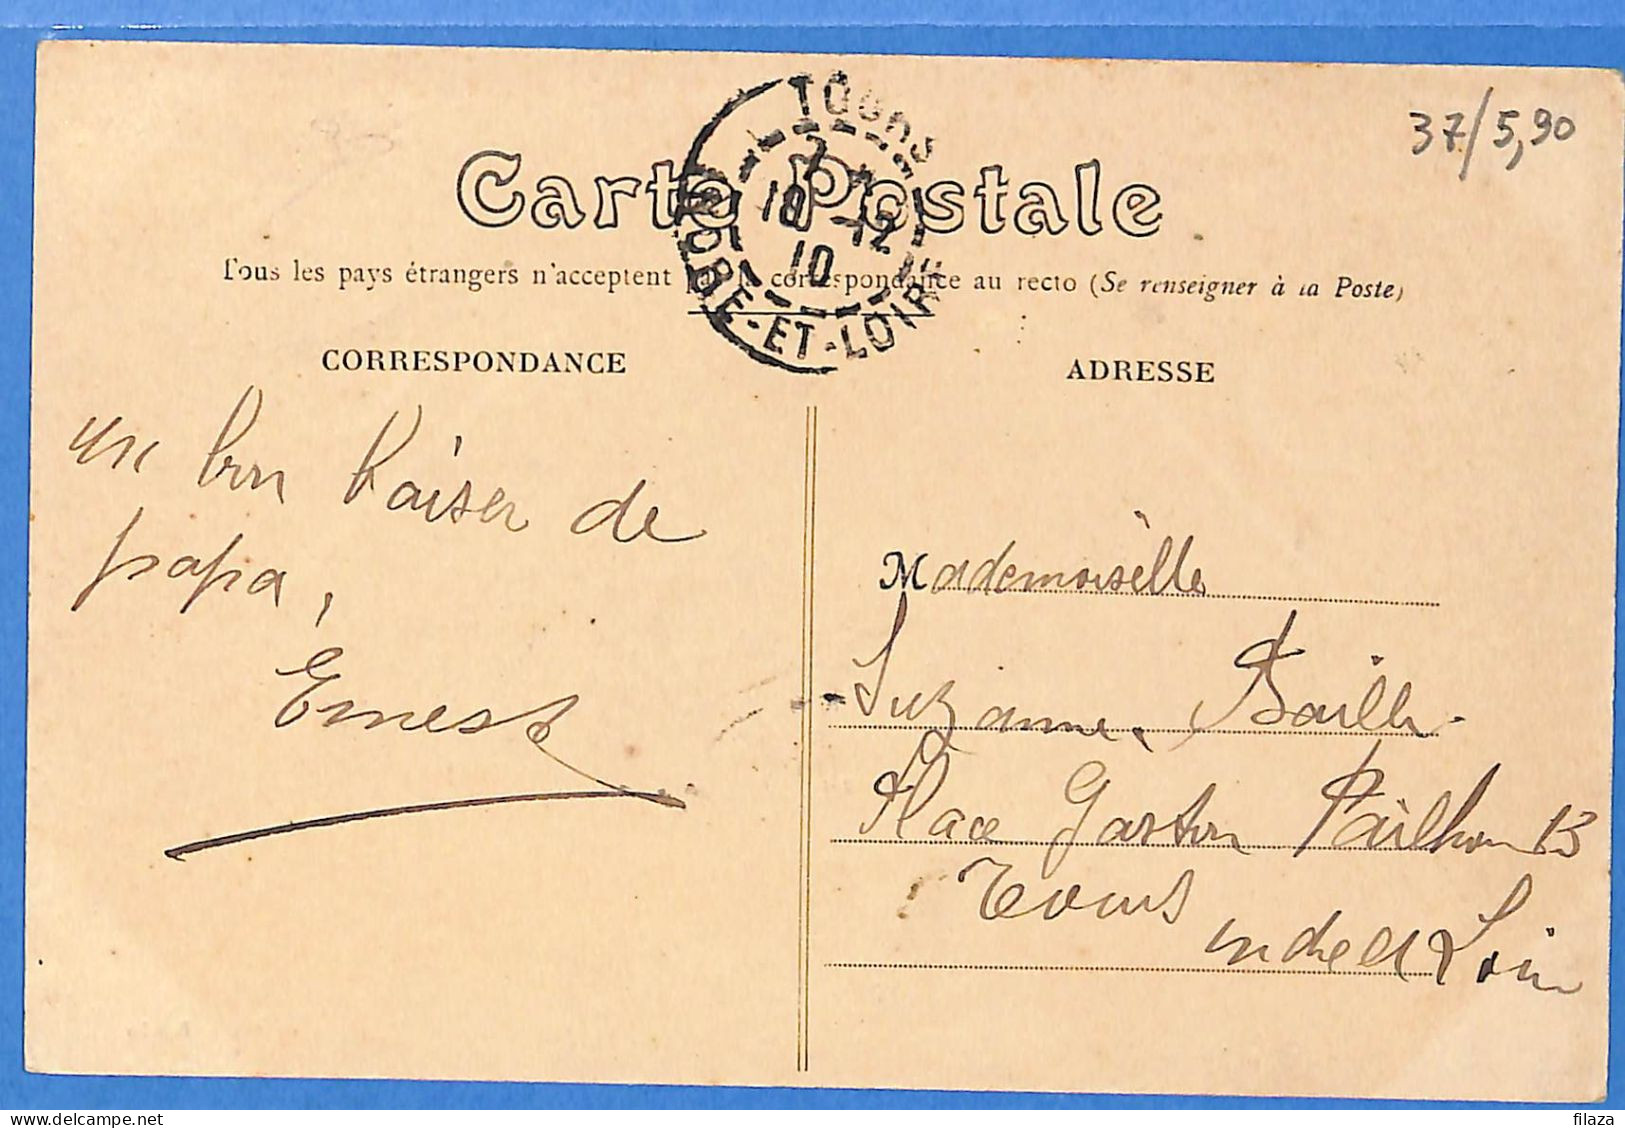 37/5,90
TOURS
7
18 -12
10
INDRE-ET-LOIRE
Carte Postale
Tous les pays étrangers n'acceptent pas la correspondance au recto (Se renseigner à la Poste)
CORRESPONDANCE
ADRESSE
un bon baiser de
papa,
Ernest
Mademoiselle
Suzanne Bailli
Place Gaston Pailhou 13
Tours
indre et Loire
filaza